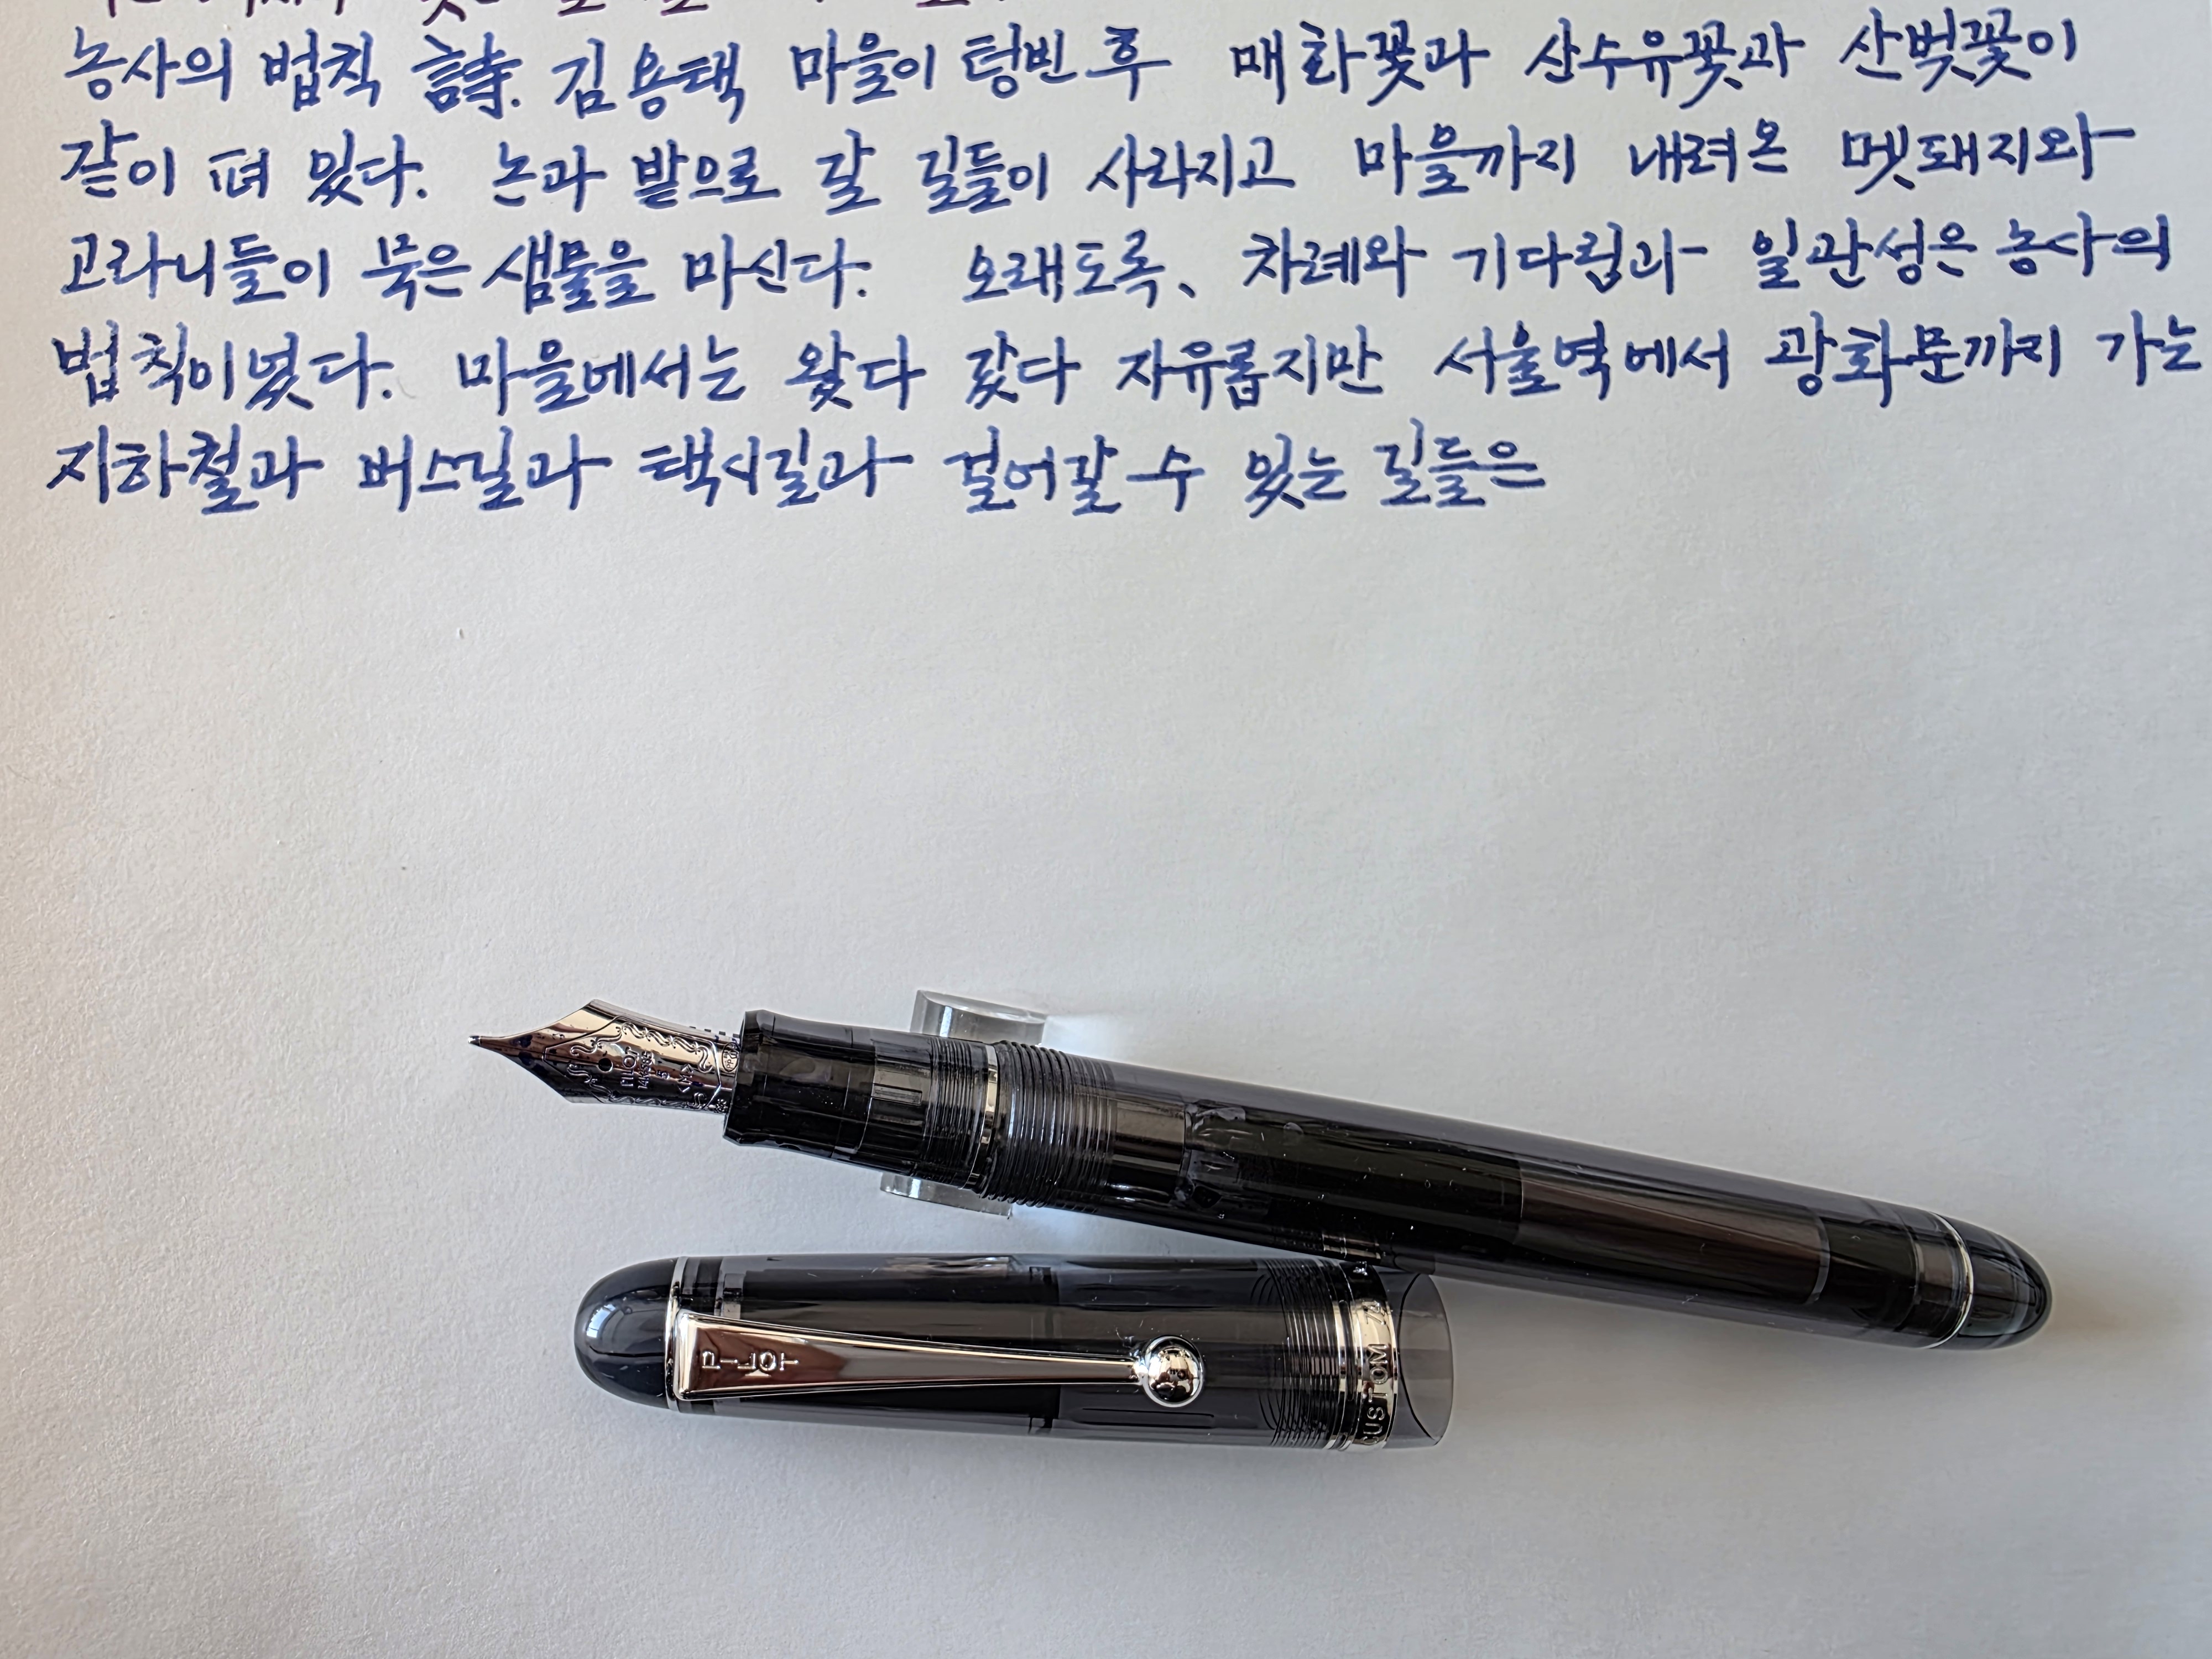 농사의 법칙 詩. 김용택 마을이 텅빈 후 매화꽃과 산수유꽃과 산벚꽃이
같이 펴 있다. 논과 밭으로 갈 길들이 사라지고 마을까지 내려온 멧돼지와
고라니들이 묵은 샘물을 마신다. 오래도록, 차례와 기다림과 일관성은 농사의
법칙이었다. 마을에서는 왔다 갔다 자유롭지만 서울역에서 광화문까지 가는
지하철과 버스길과 택시길과 걸어갈 수 있는 길들은
PILOT
PILOT
CUSTOM